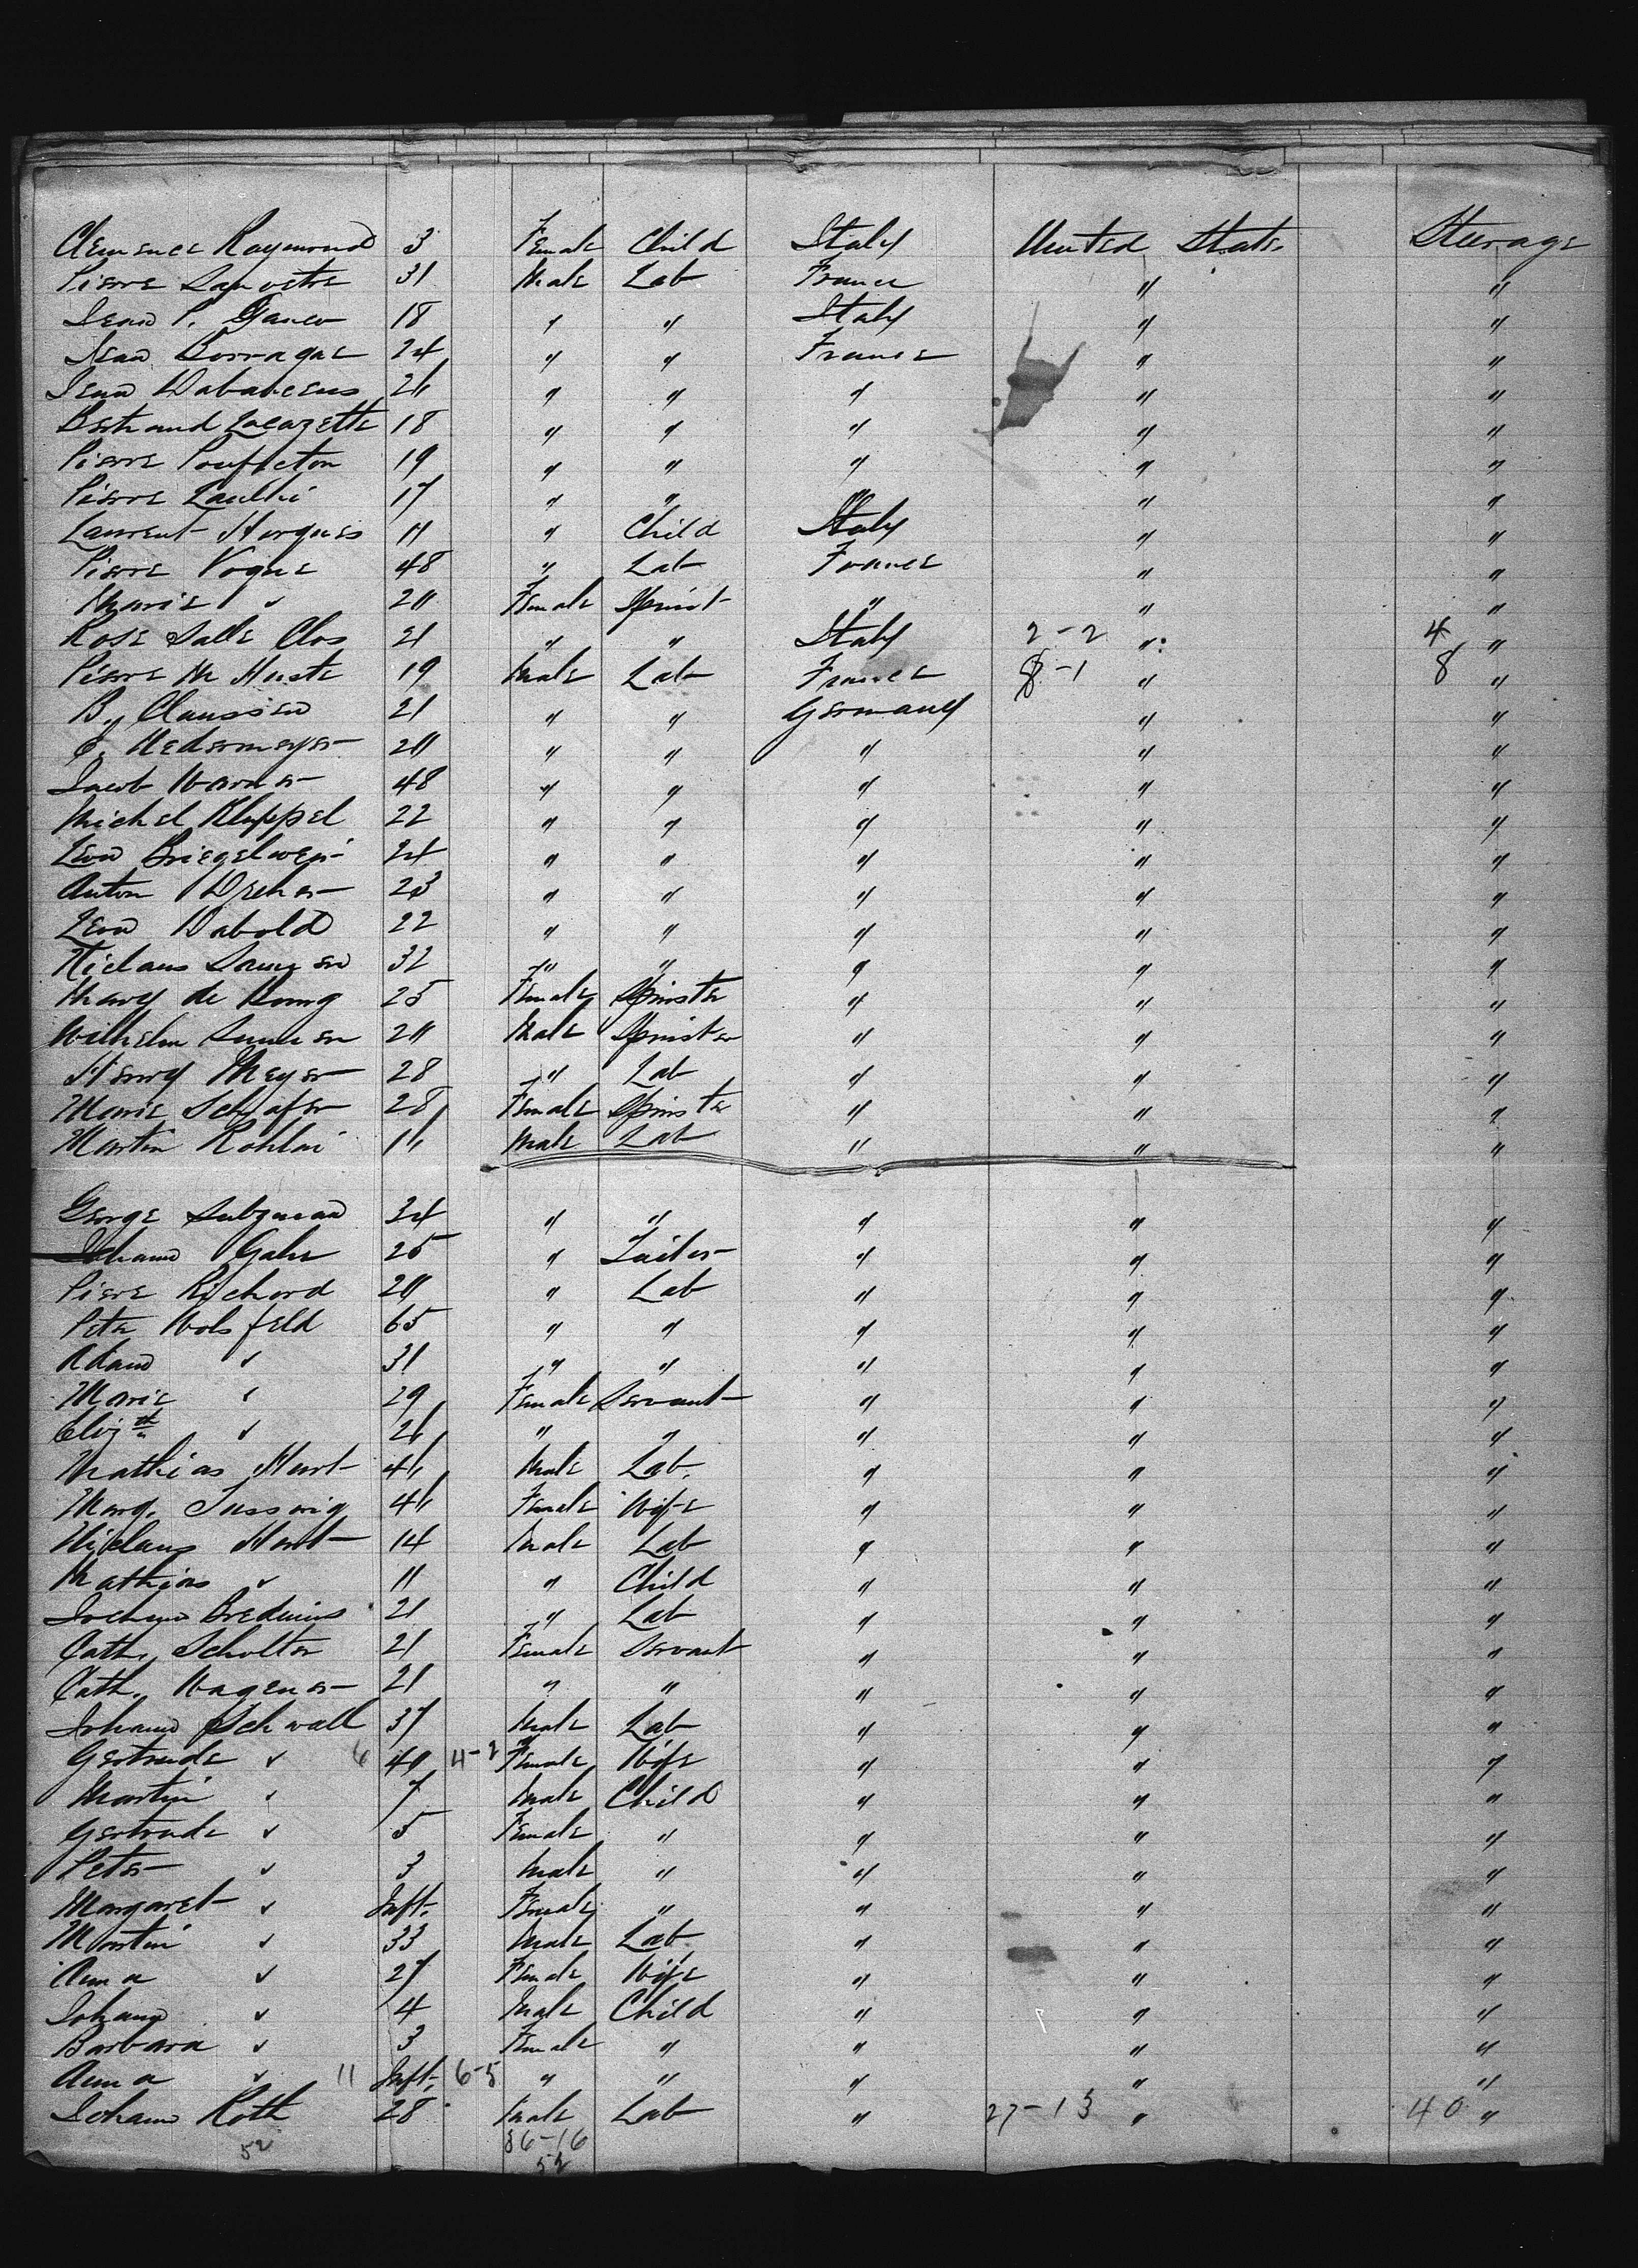 Clemence Raymond 3 Female Child Italy United States Steerage
Pierre 31 Male Lab France " "
Jean P. 18 " " Italy " "
Jean Borragae 24 " " France " "
Jean 26 " " " " "
Bertrand Lacazette 18 " " " " "
Pierre 19 " " " " "
Pierre 17 " " " " "
Laurent 11 " Child Italy " "
Pierre Vogue 48 " Lab France " "
Marie " 20 Female Spinst " " "
Rose Dalle Clos 21 " " Italy 2-2 " 4 "
Pierre M 19 Male Lab France 8-1 " 8 "
B. Claussen 21 " " Germany " "
C. Nedermeyer 20 " " " " "
Jacob Warner 48 " " " " "
Michel Kluppel 22 " " " " "
Leon 24 " " " " "
Anton Dreher 23 " " " " "
Leon Dabold 22 " " " " "
Niclaus 32 " " " " "
Mary de 25 Female Spinster " " "
Wilhelm 20 Male Spinster " " "
Henry Meyer 28 " Lab " " "
Marie Schafer 28 Female Spinster " " "
Martin 16 Male Lab " " "
George 34 " " " " "
Johann Gahr 25 " Tailor " " "
Pierre Richard 20 " Lab " " "
Peter Wolsfeld 65 " " " " "
Adam " 31 " " " " "
Marie " 29 Female Servant " " "
Elizth " 26 " " " " "
Mathias 46 Male Lab. " " "
Marg. 46 Female Wife " " "
Niclaus 14 Male Lab " " "
Mathias " 11 " Child " " "
Jochem 21 " Lab " " "
Cath. Scholter 21 Female Servant " " "
Cath. Wagener 21 " " " " "
Johann Schwall 37 Male Lab " " "
Gertrude " 6 40 4-2 Female Wife " " "
Martin " 7 Male Child " " "
Gertrude " 5 Female " " " "
Peter " 3 Male " " " "
Margaret " Inft. Female " " " "
Martin " 33 Male Lab " " "
Anna " 27 Female Wife " " "
Johann " 4 Male Child " " "
Barbara " 3 Female " " " "
Anna " 11 Inft. 6-5 " " " " "
Johann Roth 28 Male Lab " 27-13 " 40 "
52 36-16
52